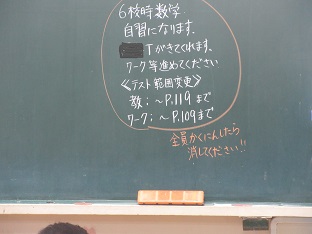 6校時数学
自習になります。
Tがきてくれます。
ワーク等進めてください
《テスト範囲変更》
教：～P.119まで
ワーク：～P.109まで
全員かくにんしたら
消してください!!